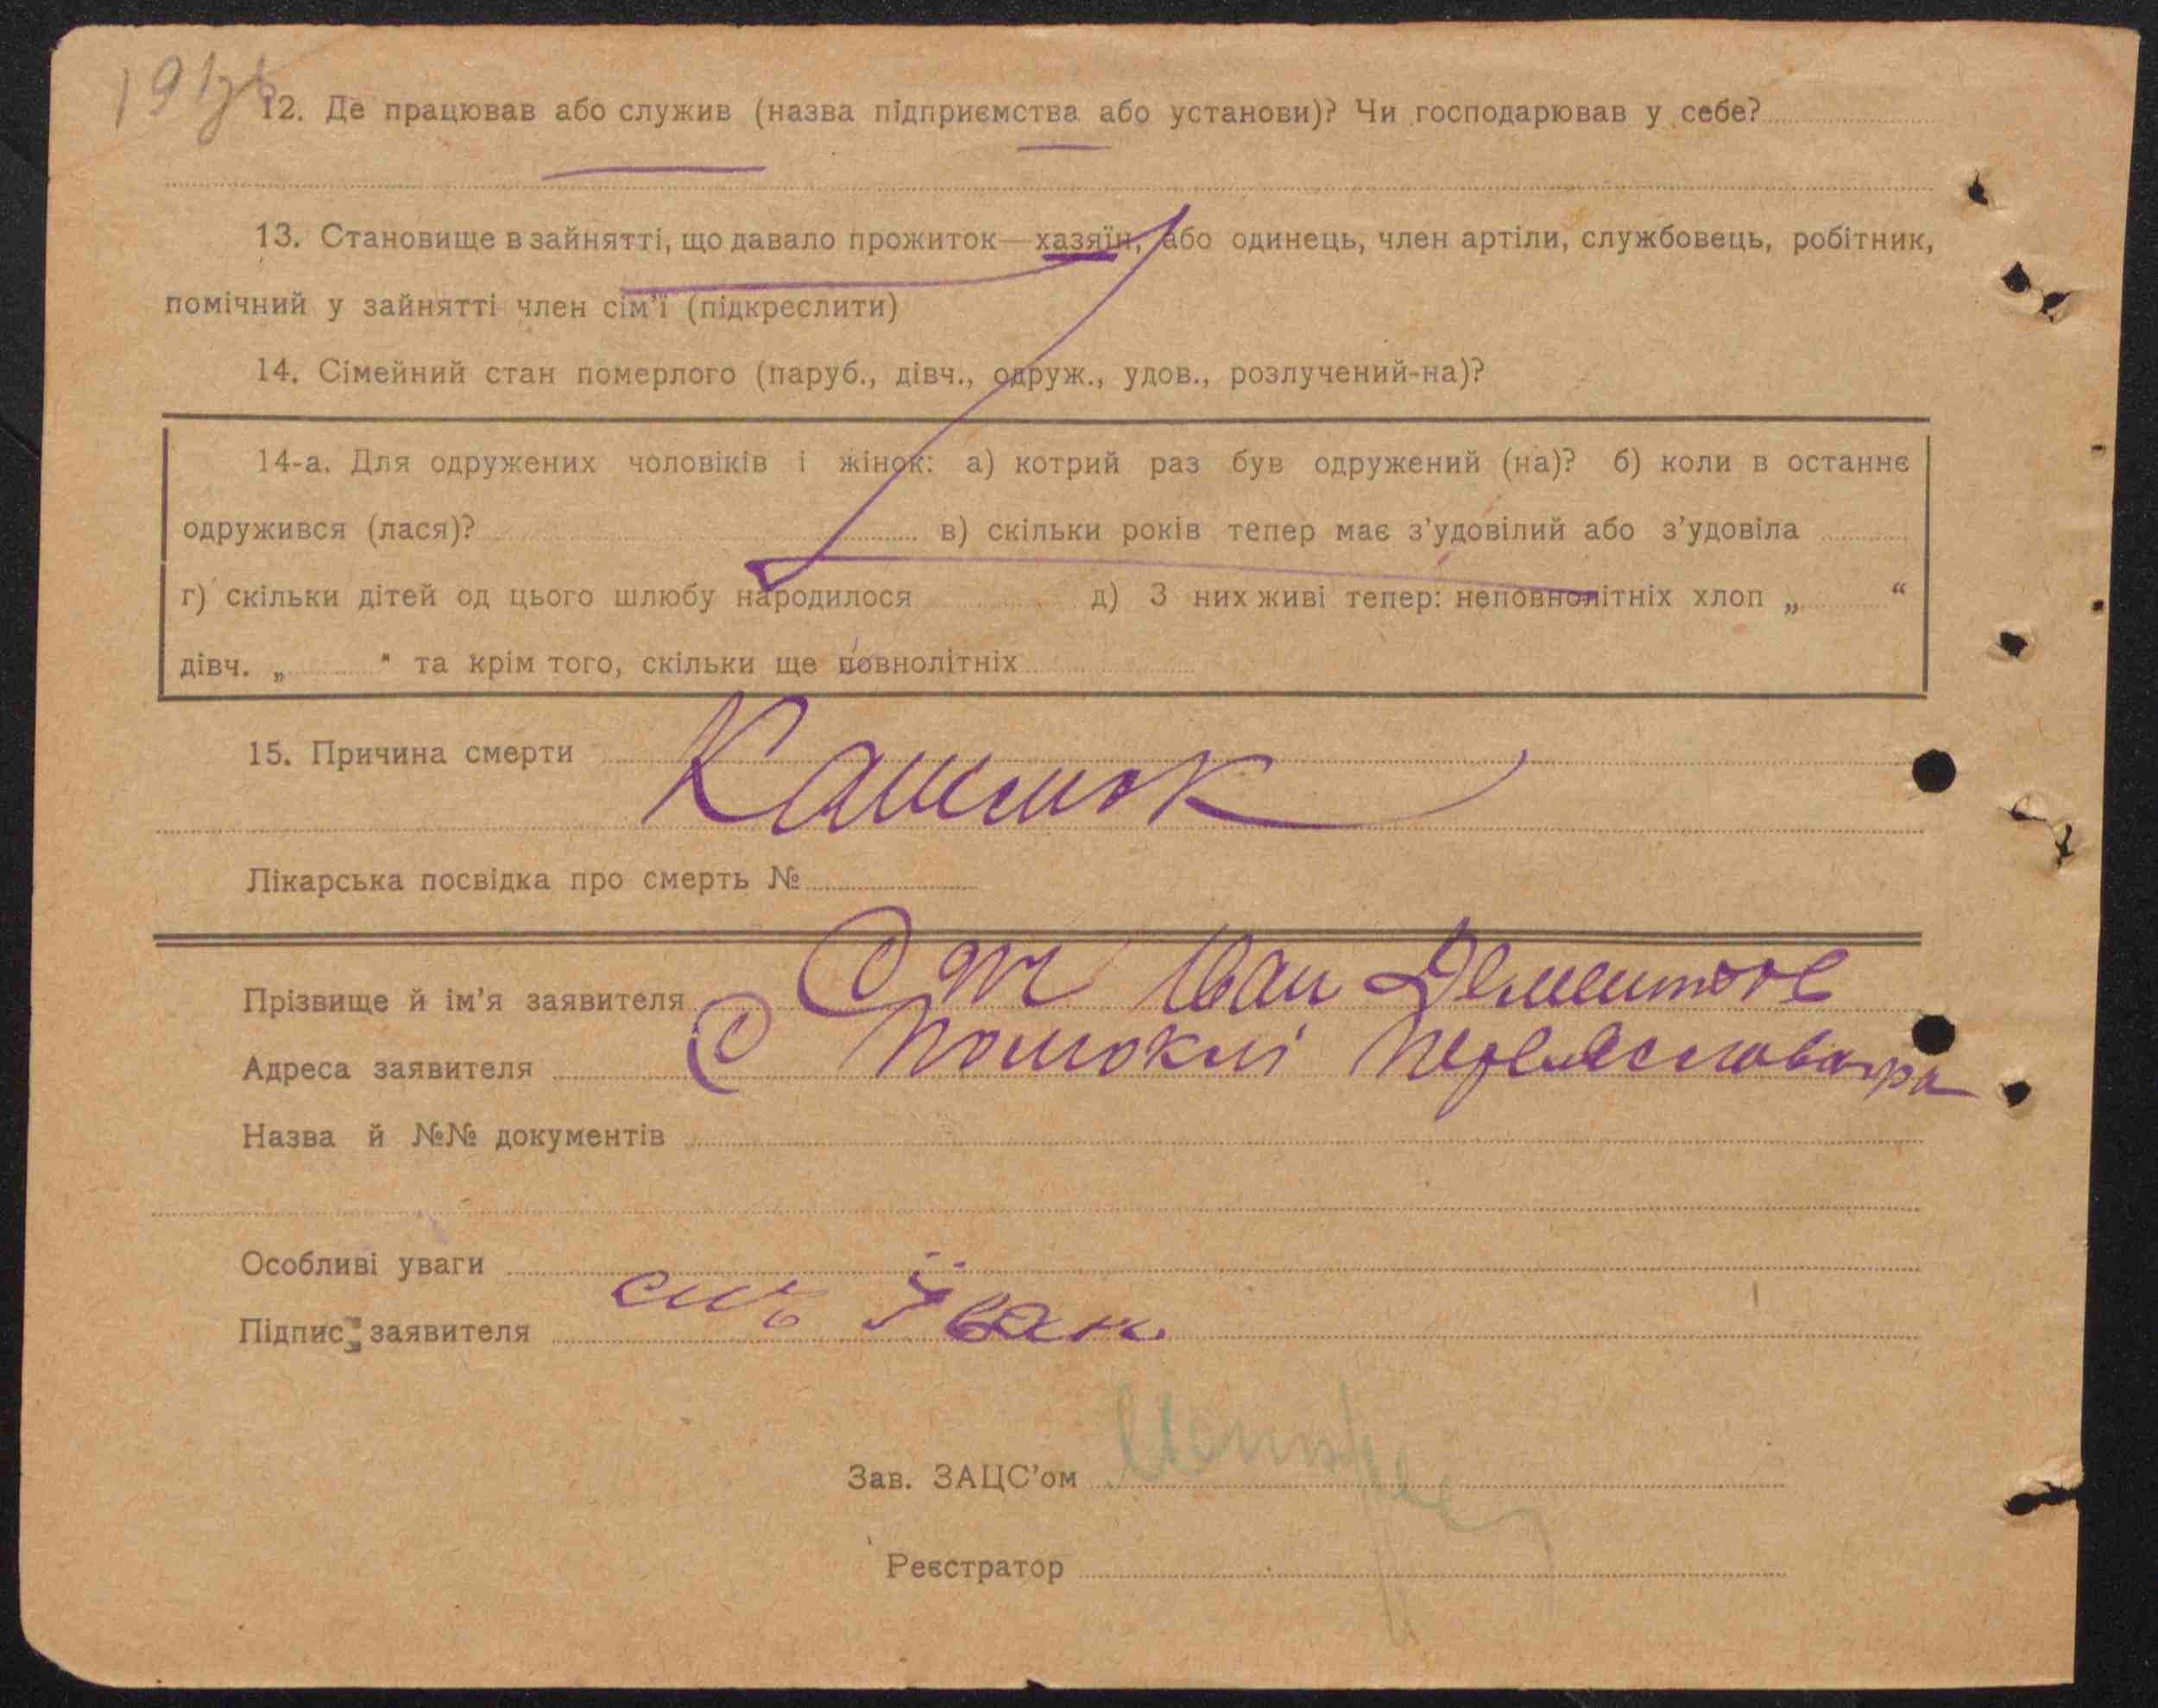 12. Де працював або служив (назва підприємства або установи)? Чи господарював у себе?
13. Становище в зайнятті, що давало прожиток—хазяїн, або одинець, член артіли, службовець, робітник,
помічний у зайнятті член сім'ї (підкреслити)
14. Сімейний стан померлого (паруб., дівч., одруж., удов., розлучений-на)?
14-а. Для одружених чоловіків і жінок: а) котрий раз був одружений (на)? б) коли в останнє
одружився (лася)? в) скільки років тепер має з'удовілий або з'удовіла
г) скільки дітей од цього шлюбу народилося д) З них живі тепер: неповнолітніх хлоп „ “
дівч. „ “ та крім того, скільки ще повнолітніх
15. Причина смерти Кашшок
Лікарська посвідка про смерть №
Прізвище й ім'я заявителя Іван
Адреса заявителя С Помоклі
Назва й №№ документів
Особливі уваги
Підпис заявителя Іван
Зав. ЗАЦС'ом
Реєстратор